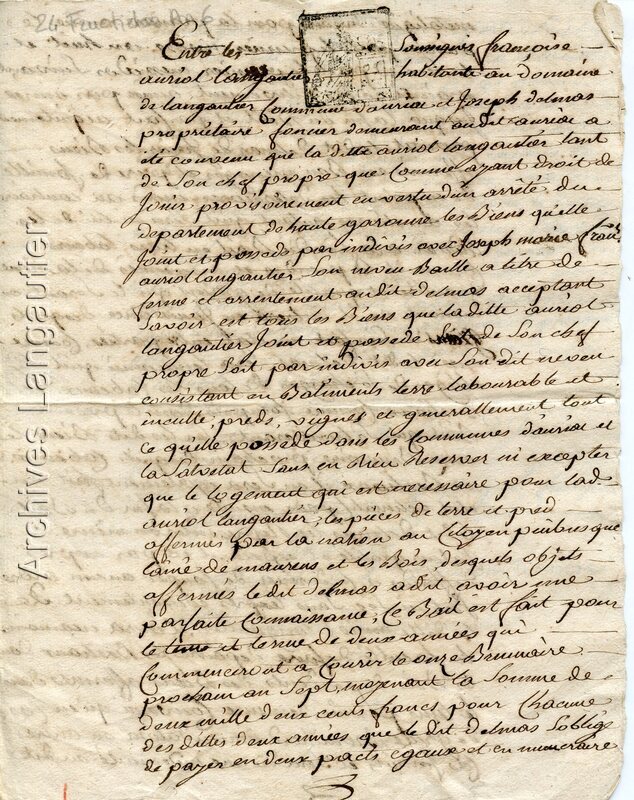 24 Fructidor An 6
Entre les Soussignés françoise
auriol langautier habitante au domaine
de langautier Commune d'auriac et Joseph delmas
propriétaire foncier demeurant audit auriac a
été convenu que la ditte auriol langautier tant
de Son chef propre que comme ayant droit de
Jouir provisoirement en vertu d'un arrêté du
departement de haute garonne les Biens qu'elle
Jouit et possede par indivis avec Joseph marie
auriol langautier Son neveu Baille a titre de
ferme et arrentement audit delmas acceptant
Savoir est tous les Biens que la ditte auriol
langautier Jouit et possede Soit de Son chef
propre Soit par indivis avec Son dit neveu
consistant en Batiments terre labourable et
inculte, preds, vignes et generallement tout
ce qu'elle possède dans les Communes d'auriac et
la Salvetat Sans en Rien Reserver ni excepter
que le logement qui est necessaire pour lad
auriol langautier, les pièces de terre et pred
affermés par la nation au Citoyen pinbresque
lainé de maurens et les Bois, desquels objets
affermés le dit delmas a dit avoir une
parfaite Connaissance, Ce Bail est fait pour
le tems et terme de deux années qui
Commenceront a Courir le onze Brumaire
prochain an Sept, moyenant la Somme de
deux mille deux cents francs pour Chacune
des dittes deux années que le dit delmas Soblige
de payer en deux pacts egaux et en numeraire
Archives Langautier